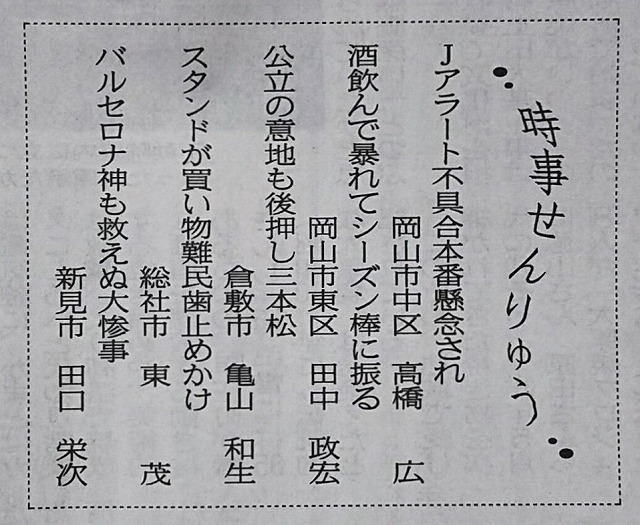 時事せんりゅう
Jアラート不具合本番懸念され
岡山市中区 高橋 広
酒飲んで暴れてシーズン棒に振る
岡山市東区 田中 政宏
公立の意地も後押し三本松
倉敷市 亀山 和生
スタンドが買い物難民歯止めかけ
総社市 東 茂
バルセロナ神も救えぬ大惨事
新見市 田口 栄次